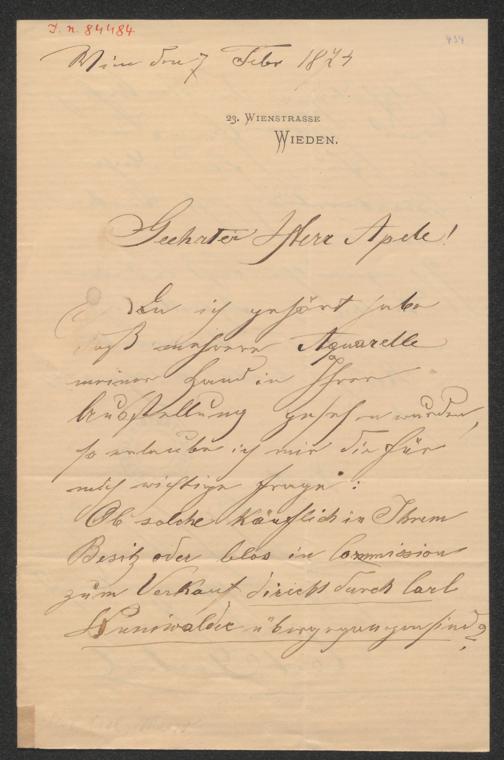 J. n. 84484
434
Wien den 7 Febr 187
23. WIENSTRASSE
WIEDEN.
Geehrter Herr Apele!
Da ich gehört habe
daß mehrere Aquarelle
meiner Hand in Ihrer
Ausstellung gesehen wurden,
so erlaube ich mir die für
mich wichtige Frage:
Ob solche Käuflich in Ihrem
Besitz oder blos in Commission
zum Verkauf direckt durch Carl
übergegangen sind?